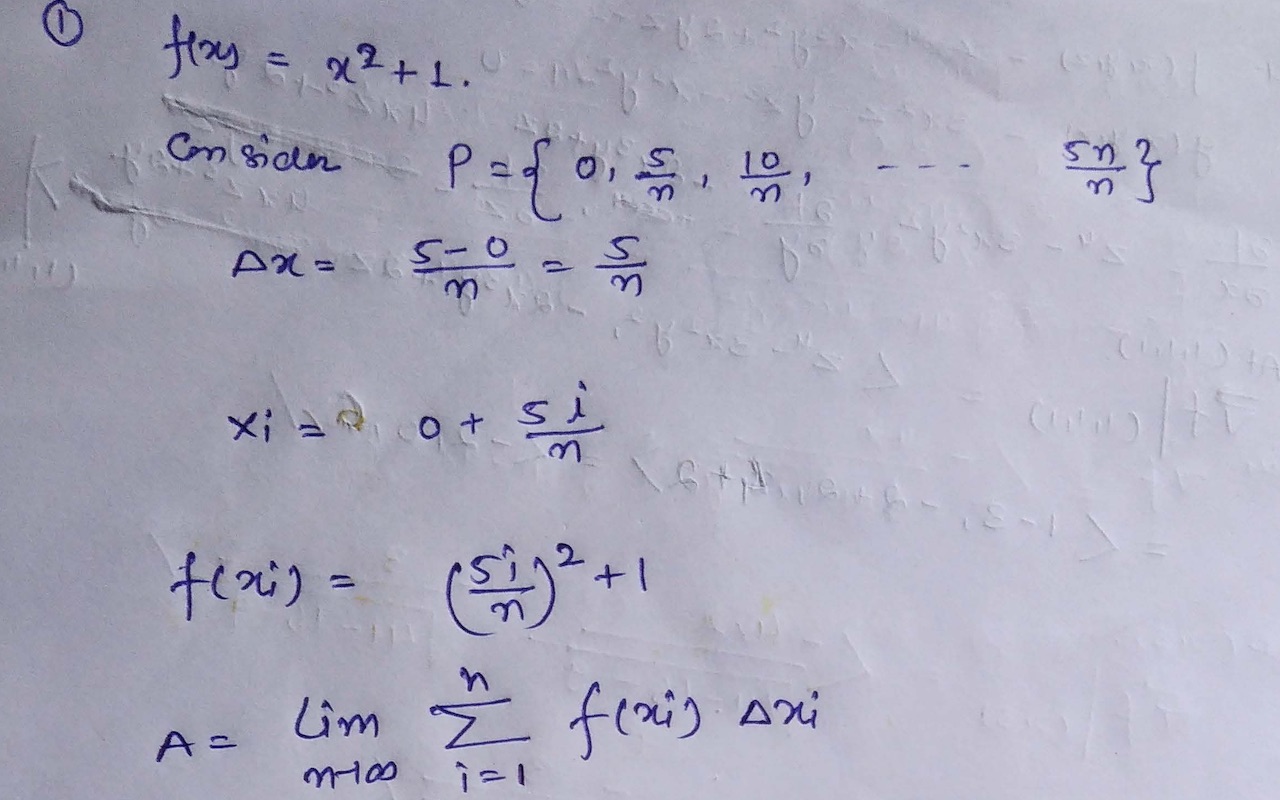 ① f(x) = x² + 1.
Consider P = { 0, 5/n, 10/n, --- 5n/n }
Δx = (5-0)/n = 5/n
xi = 0 + 5i/n
f(xi) = (5i/n)² + 1
A = Lim n→∞ Σ i=1 n f(xi) Δxi